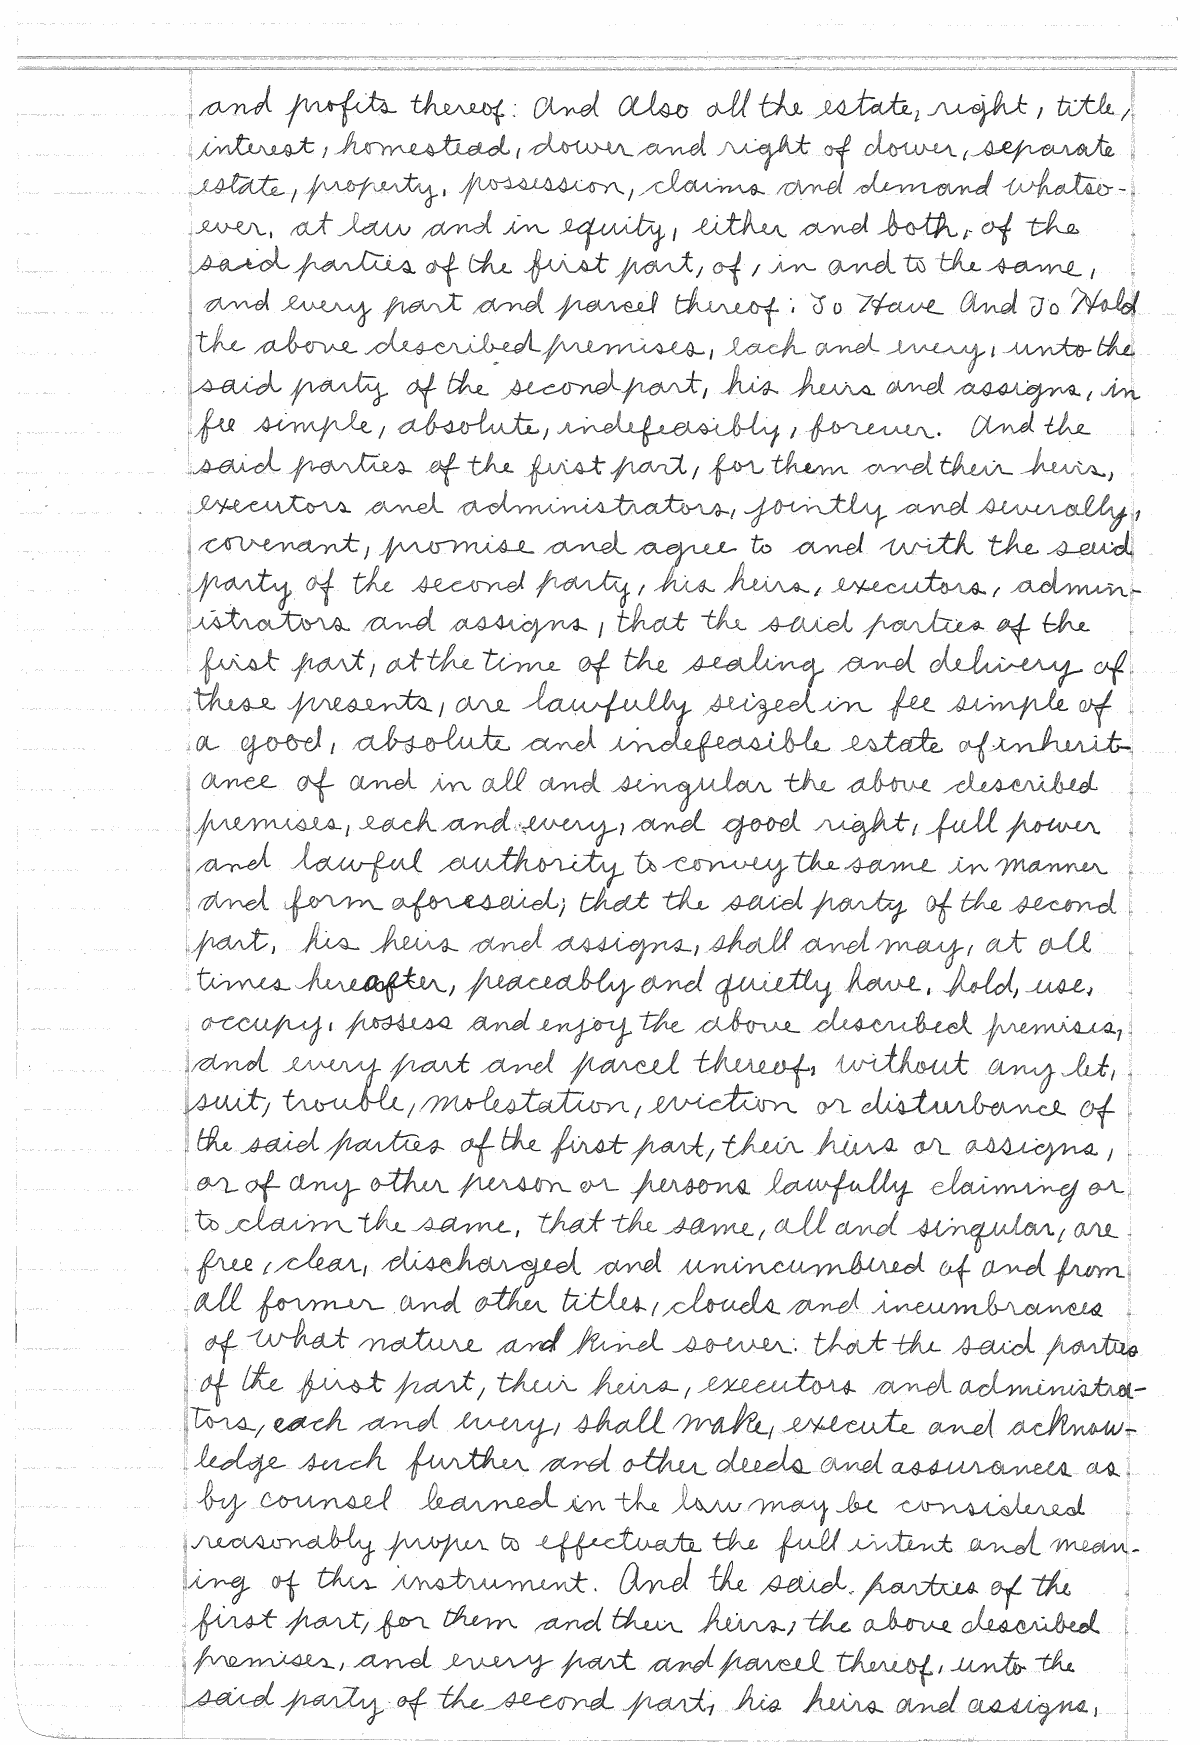 and profits thereof: And Also all the estate, right, title,
interest, homestead, dower and right of dower, separate
estate, property, possession, claims and demand whatso-
ever, at law and in equity, either and both, of the
said parties of the first part, of, in and to the same,
and every part and parcel thereof: To Have And To Hold
the above described premises, each and every, unto the
said party of the second part, his heirs and assigns, in
fee simple, absolute, indefeasibly, forever. And the
said parties of the first part, for them and their heirs,
executors and administrators, jointly and severally,
covenant, promise and agree to and with the said
party of the second party, his heirs, executors, admin-
istrators and assigns, that the said parties of the
first part, at the time of the sealing and delivery of
these presents, are lawfully seized in fee simple of
a good, absolute and indefeasible estate of inherit-
ance of and in all and singular the above described
premises, each and every, and good right, full power
and lawful authority to convey the same in manner
and form aforesaid; that the said party of the second
part, his heirs and assigns, shall and may, at all
times hereafter, peaceably and quietly have, hold, use,
occupy, possess and enjoy the above described premises,
and every part and parcel thereof, without any let,
suit, trouble, molestation, eviction or disturbance of
the said parties of the first part, their hiers or assigns,
or of any other person or persons lawfully claiming or
to claim the same, that the same, all and singular, are
free, clear, discharged and unincumbered of and from
all former and other titles, clouds and incumbrances
of what nature and kind soever: that the said parties
of the first part, their heirs, executors and administra-
tors, each and every, shall make, execute and acknow-
ledge such further and other deeds and assurances as
by counsel learned in the law may be considered
reasonably proper to effectuate the full intent and mean-
ing of this instrument. And the said parties of the
first part, for them and their heirs, the above described
premises, and every part and parcel thereof, unto the
said party of the second part, his heirs and assigns,